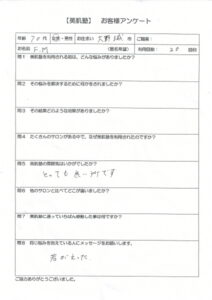 【美肌塾】 お客様アンケート
年齢 70代 女性・男性 お住まい 大野城 市 ご職業：
お名前 F.M （匿名希望） 利用回数： 28 回目
問1 美肌塾を利用される前は、どんな悩みがありましたか？
問2 その悩みを解決するために何かをされましたか？
問3 その結果どのような効果がありましたか？
問4 たくさんのサロンがある中で、なぜ美肌塾を利用されたのですか？
問5 美肌塾の雰囲気はいかがでしたか？
とっても良いです
問6 他のサロンと比べてどこが違いましたか？
問7 美肌塾に通っていちばん感動した事は何ですか？
問8 同じ悩みを抱えている人にメッセージをお願いします。
若がえった
ご協力ありがとうございました。